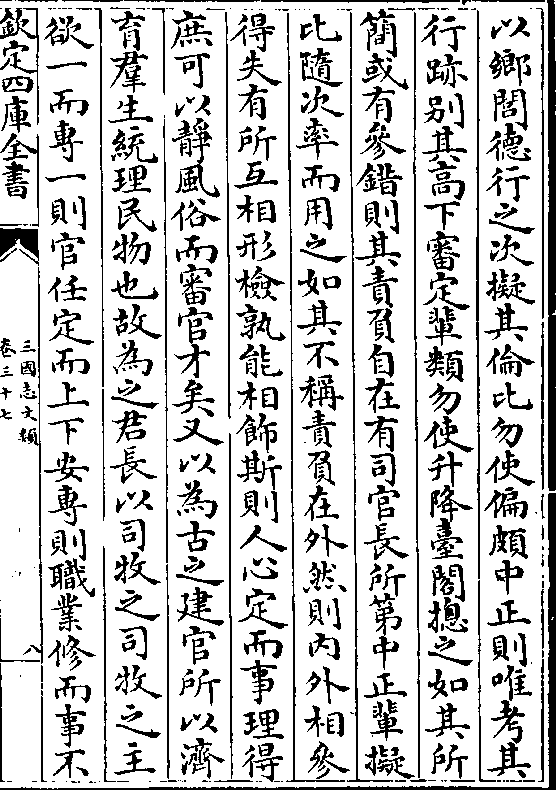 以鄉閭德行之次擬其倫比勿使偏頗中正則唯考其
行跡别其高下審定輩類勿使升降臺閣摠之如其所
簡或有參錯則其責負自在有司官長所第中正輩擬
比隨次率而用之如其不稱責負在外然則内外相參
得失有所互相形檢孰能相飾斯則人心定而事理得
庶可以靜風俗而審官才矣又以為古之建官所以濟
育羣生統理民物也故為之君長以司牧之司牧之主
欲一而專一則官任定而上下安專則職業修而事不
欽定四庫全書
三國志文類
卷三十七
八